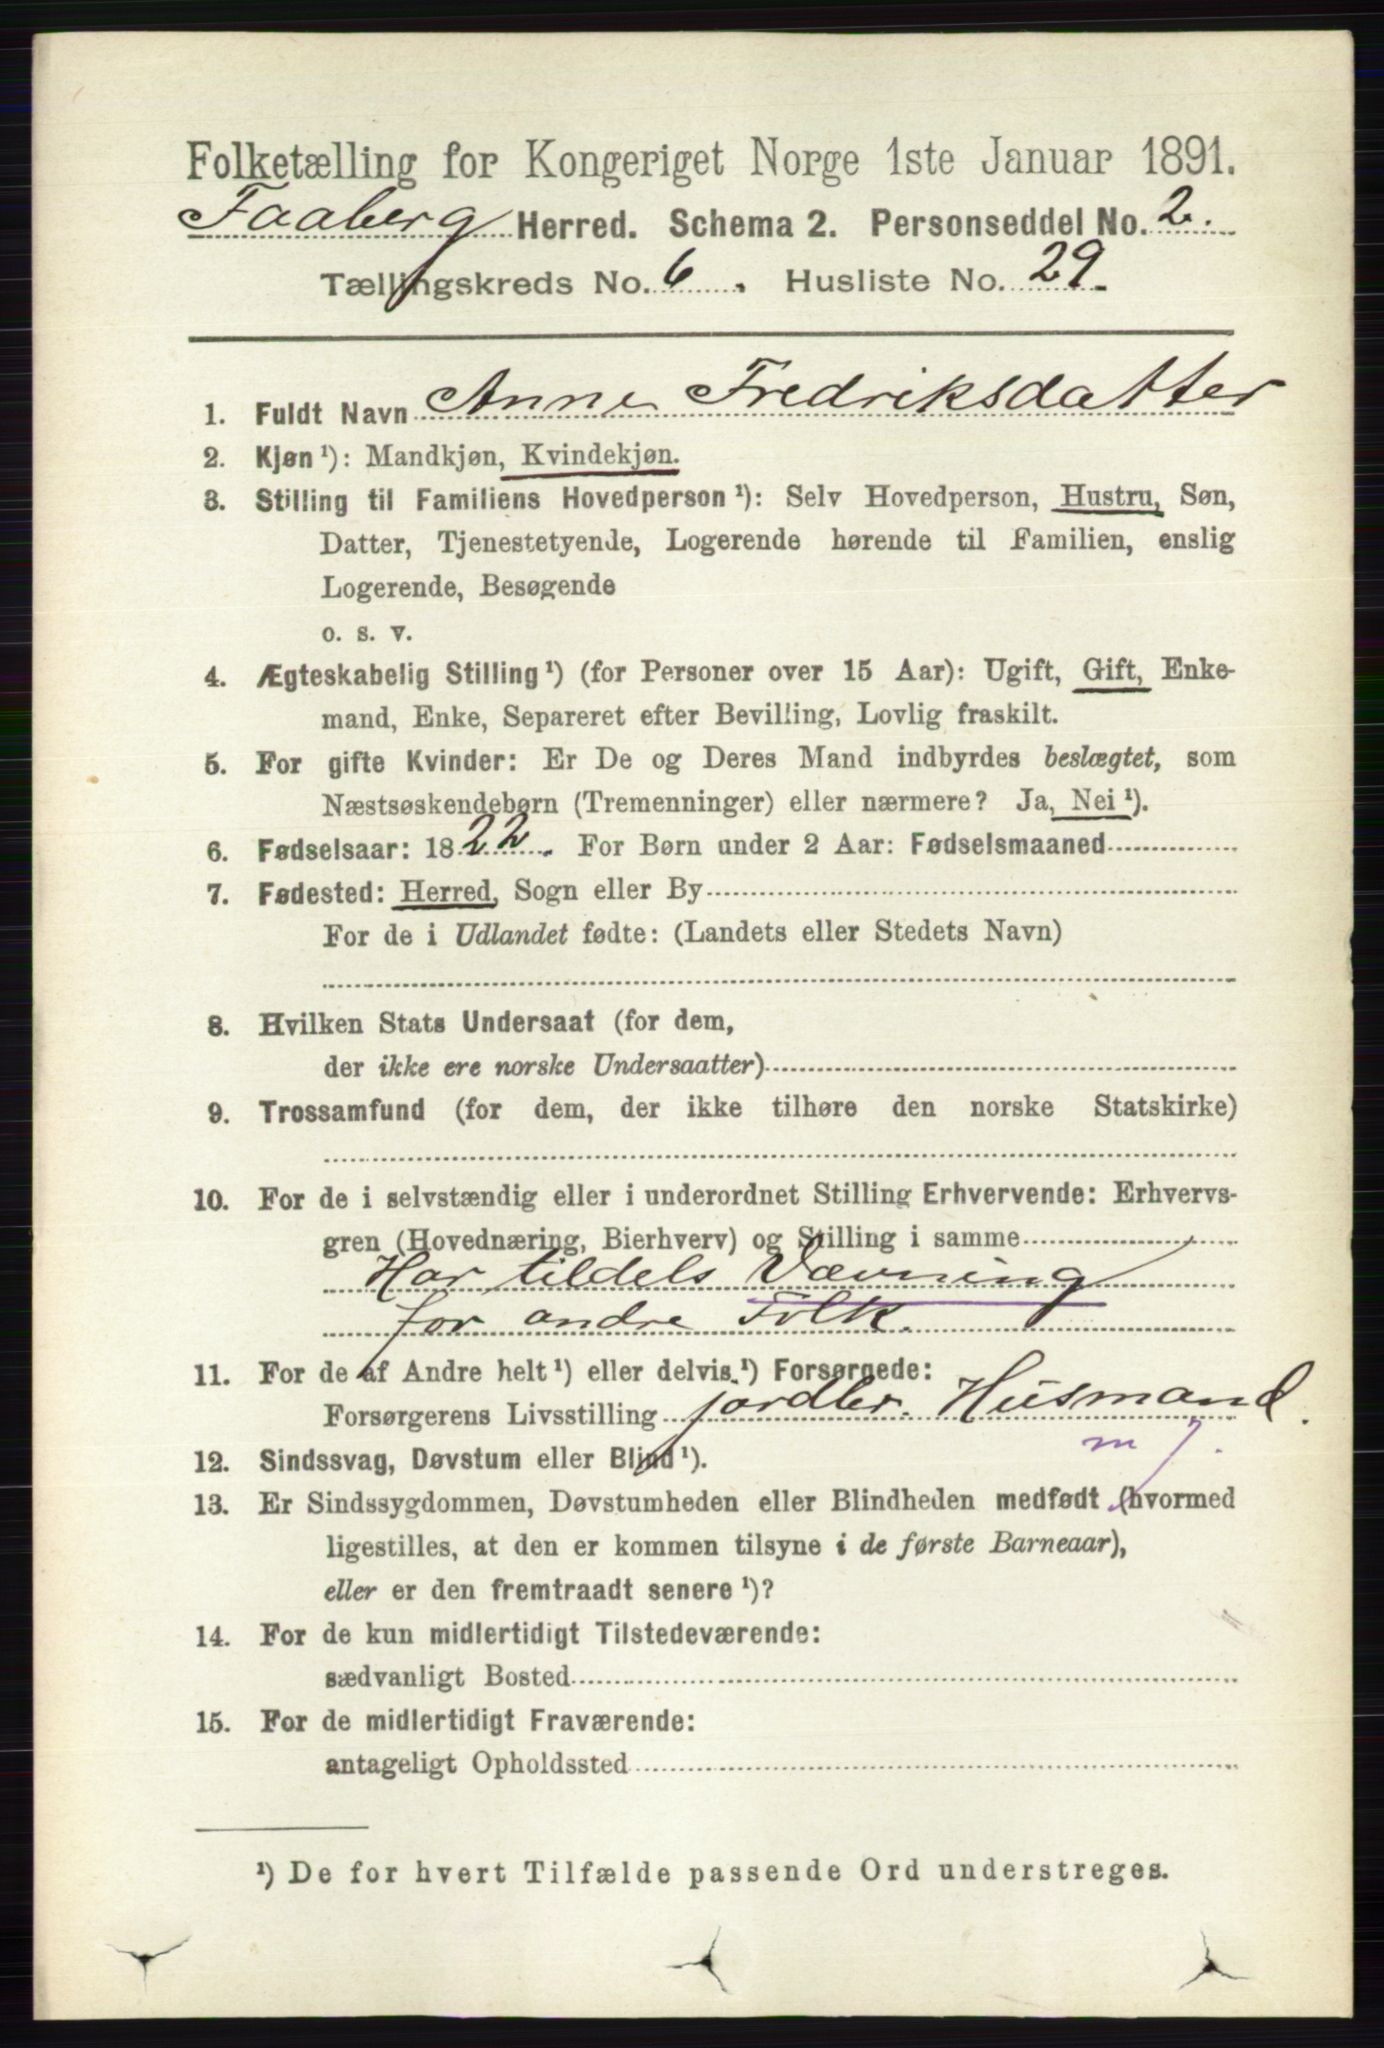 Folketælling for Kongeriget Norge 1ste Januar 1891.
Faaberg Herred. Schema 2. Personseddel No. 2.
Tællingskreds No. 6. Husliste No. 29.
1. Fuldt Navn Anne Fredriksdatter
2. Kjøn ¹): Mandkjøn, Kvindekjøn.
3. Stilling til Familiens Hovedperson ¹): Selv Hovedperson, Hustru, Søn,
Datter, Tjenestetyende, Logerende hørende til Familien, enslig
Logerende, Besøgende
o. s. v.
4. Ægteskabelig Stilling ¹) (for Personer over 15 Aar): Ugift, Gift, Enke-
mand, Enke, Separeret efter Bevilling, Lovlig fraskilt.
5. For gifte Kvinder: Er De og Deres Mand indbyrdes beslægtet, som
Næstsøskendebørn (Tremenninger) eller nærmere? Ja, Nei ¹).
6. Fødselsaar: 1822. For Børn under 2 Aar: Fødselsmaaned
7. Fødested: Herred, Sogn eller By
For de i Udlandet fødte: (Landets eller Stedets Navn)
8. Hvilken Stats Undersaat (for dem,
der ikke ere norske Undersaatter)
9. Trossamfund (for dem, der ikke tilhøre den norske Statskirke)
10. For de i selvstændig eller i underordnet Stilling Erhvervende: Erhvervs-
gren (Hovednæring, Bierhverv) og Stilling i samme
Har tildels Vævning
for andre Folk.
11. For de af Andre helt ¹) eller delvis ¹) Forsørgede:
Forsørgerens Livsstilling jordbr. Husmand.
m j.
12. Sindssvag, Døvstum eller Blind ¹).
13. Er Sindssygdommen, Døvstumheden eller Blindheden medfødt (hvormed
ligestilles, at den er kommen tilsyne i de første Barneaar),
eller er den fremtraadt senere ¹)?
14. For de kun midlertidigt Tilstedeværende:
sædvanligt Bosted
15. For de midlertidigt Fraværende:
antageligt Opholdssted
¹) De for hvert Tilfælde passende Ord understreges.